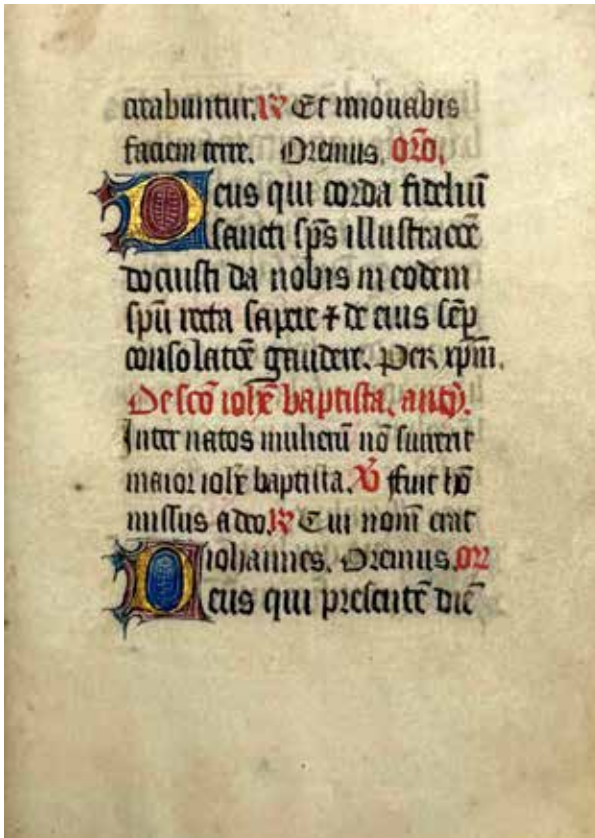 crabuntur. R Et renouabis
faciem terre. Oremus. orō.
Deus qui corda fideliū
sancti sp̄s illustracōe
docuisti da nobis in eodem
spū recta sapere ⁊ de eius sēp
consolacōe gaudere. Per xp̄m.
De scō ioh̄e baptista. antȳ.
Inter natos mulierū nō surrexit
maior ioh̄e baptista. V̄ ffuit hō
missus a deo. R Cui nomē erat
iohannes. Oremus. or̄
Deus qui presentē diē